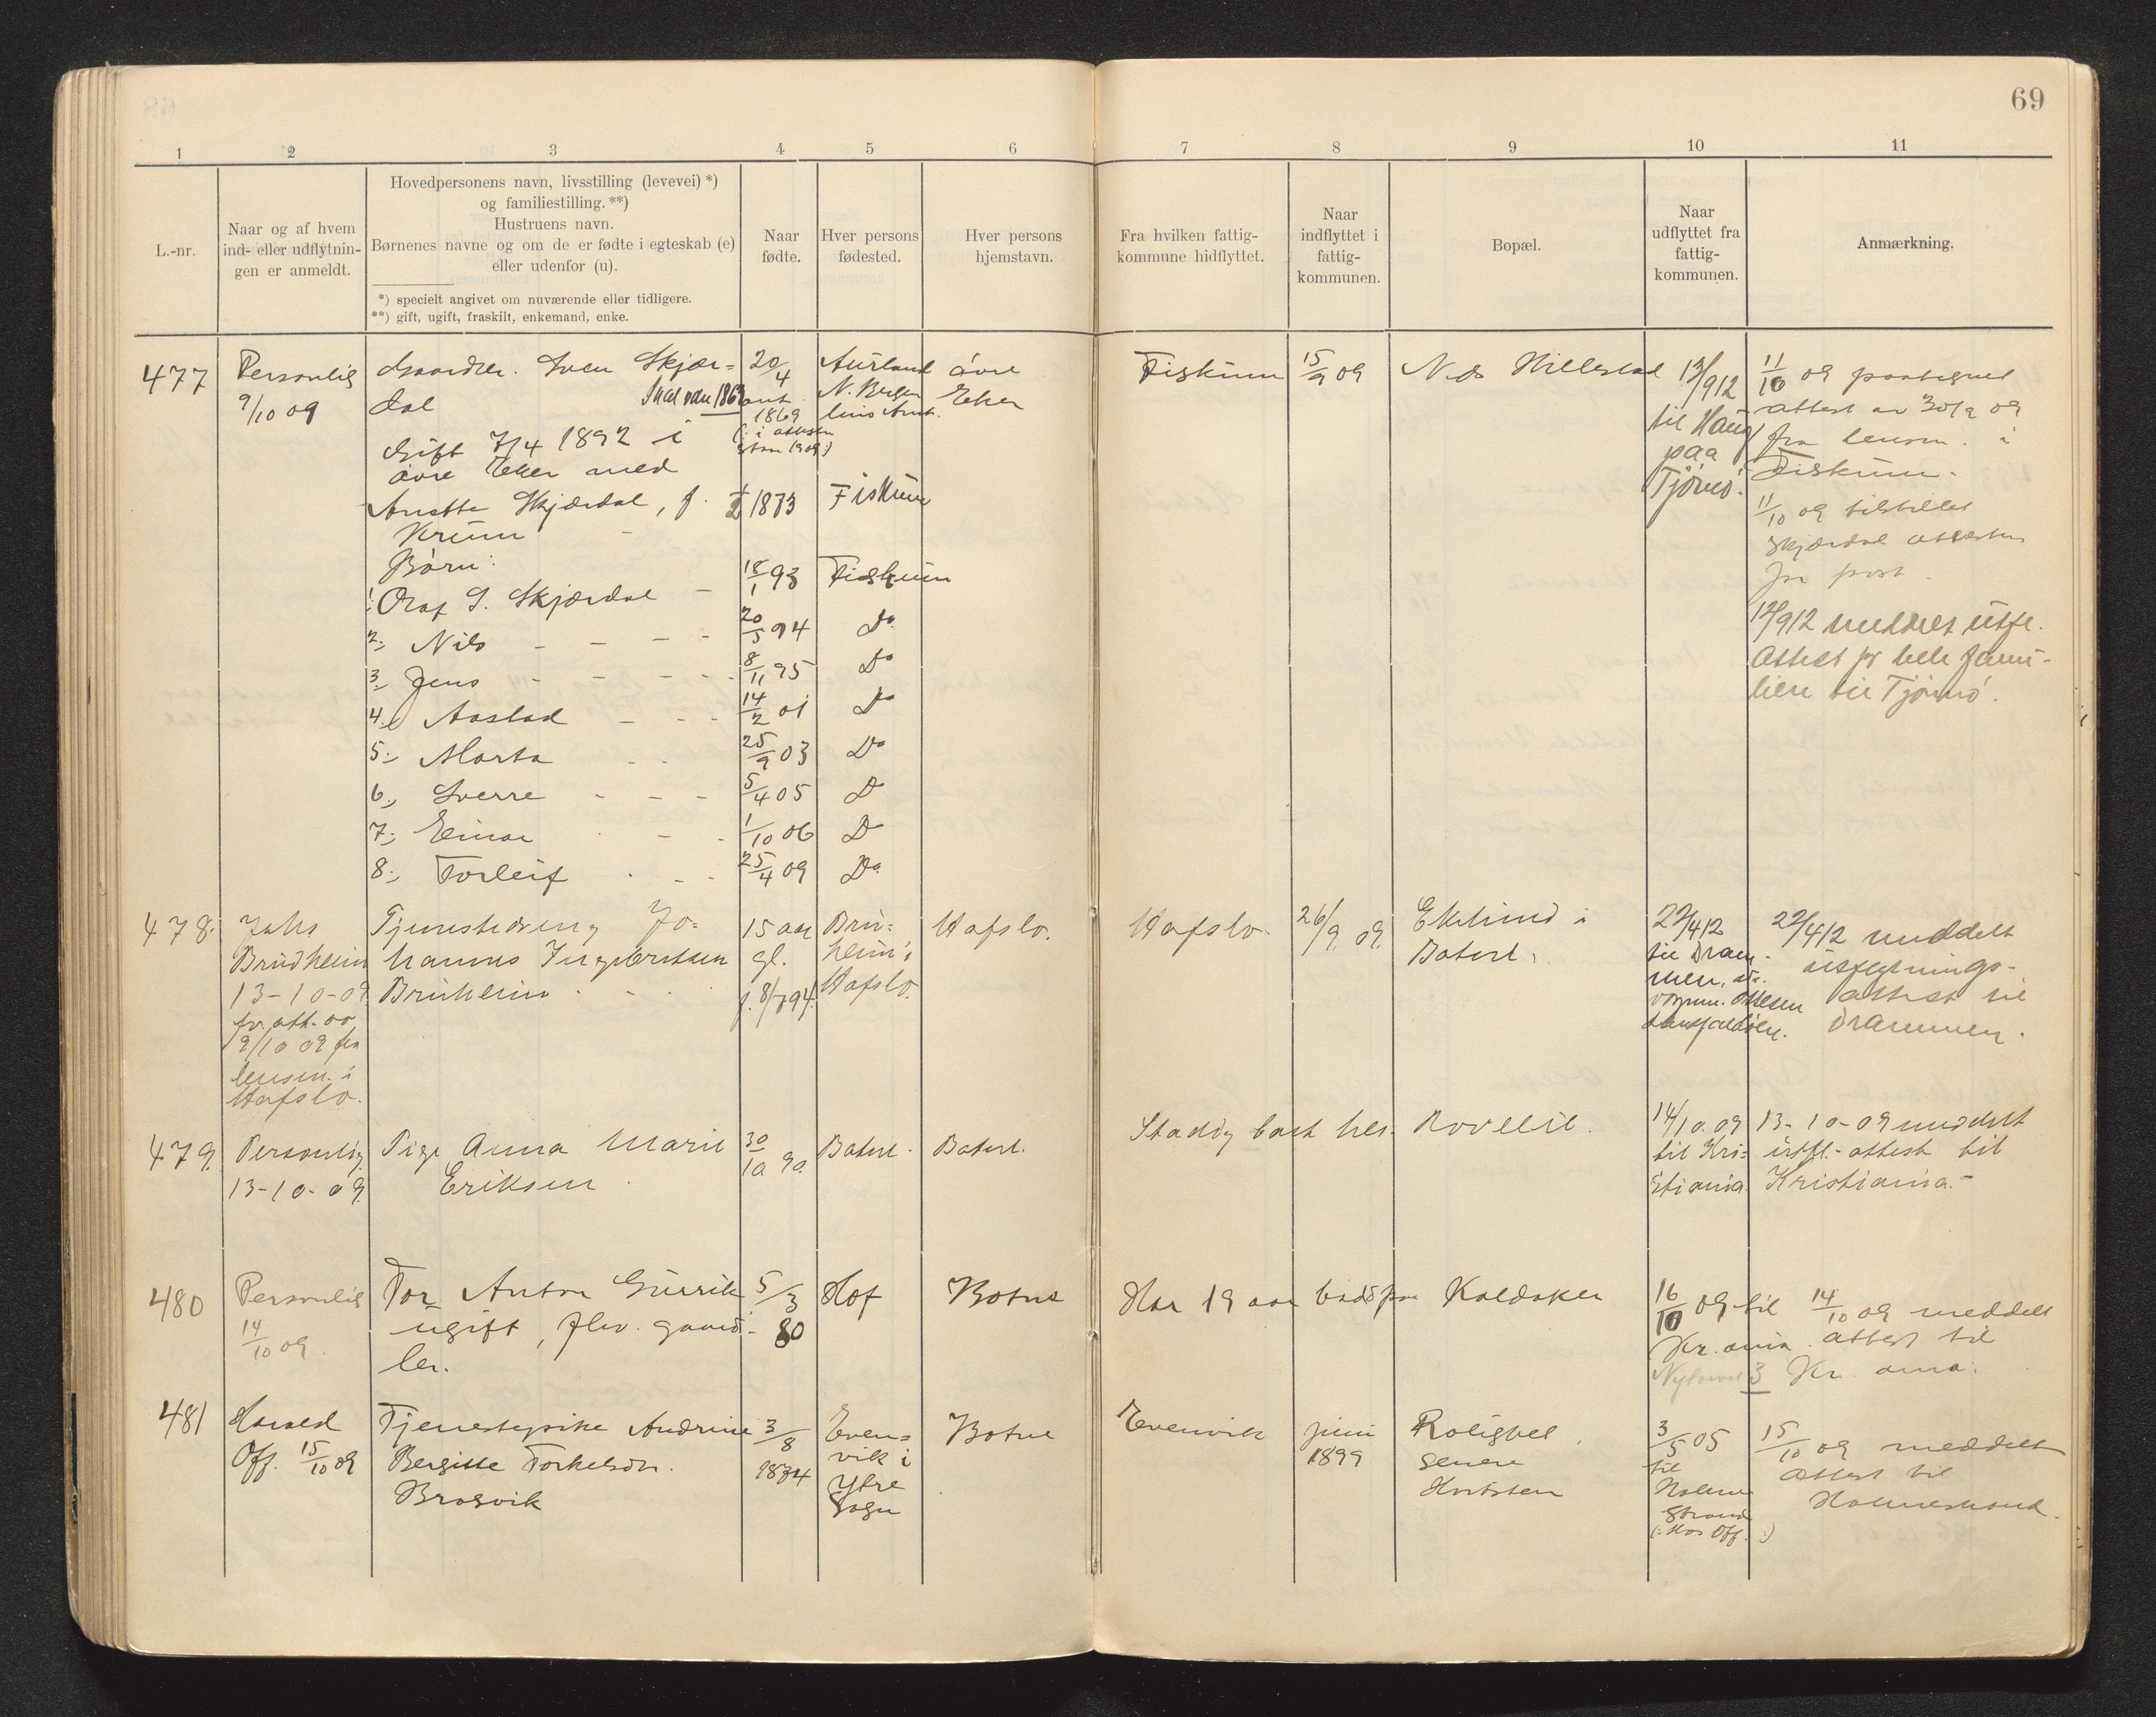 69
1 2 3 4 5 6 7 8 9 10 11
L.-nr.
Naar og af hvem
ind- eller udflytnin-
gen er anmeldt.
Hovedpersonens navn, livsstilling (levevei) *)
og familiestilling. **)
Hustruens navn.
Børnenes navne og om de er fødte i egteskab (e)
eller udenfor (u).
*) specielt angivet om nuværende eller tidligere.
**) gift, ugift, fraskilt, enkemand, enke.
Naar
fødte.
Hver persons
fødested.
Hver persons
hjemstavn.
Fra hvilken fattig-
kommune hidflyttet.
Naar
indflyttet i
fattig-
kommunen.
Bopæl.
Naar
udflyttet fra
fattig-
kommunen.
Anmærkning.
477
Personlig
9/10 09
Gaardbr. Sven Skjær-
dal
Skal være 1869
Gift 7/4 1892 i
øvre Eker med
Anette Skjærdal, f.
Krum
Børn:
1: Olaf S. Skjærdal -
2: Nils - - - -
3: Jens - - - -
4: Aaslad - - -
5: Marta - -
6: Sverre - - -
7: Einar - -
8: Torleif - - -
20/4
1869
(: i attesten
1873
18/1 93
20/5 94
8/11 95
14/2 01
25/9 03
5/4 05
1/10 06
25/4 09
Aurland
N. Bergen
hus Amt.
Fiskum
Fiskum
Do
Do
Do
Do
Do
Do
Do
øvre
Eker
Fiskum
15/9 09
N. Hillestad
12/9 12
til Haug
paa
Tjømø.
11/10 09 paategnet
attest av 30/9 09
fra lensm. i
Fiskum.
11/10 09 tilstillet
Skjærdal attesten
pr post.
12/9 12 meddelt utfl.
attest for hele fami-
lien til Tjømø.
478.
Brudheim
13-10-09
fr. att. av
9/10 09 fra
lensm. i
Hafslo.
Tjenestedreng Jo-
hannes Ingebretsen
Bruheim - - -
15 aar
gl.
f. 8/7 94.
Bru-
heim i
Hafslo.
Hafslo.
Hafslo.
26/9. 09.
Eklund i
Botne.
22/4 12
til Dram-
men, adr.
22/4 12 meddelt
utflytnings-
attest til
Drammen.
479.
Personlig
13-10-09.
Pige Anna Marie
Eriksen
30/10 90.
Botne.
Botne.
Stadig bodt her.
14/10.09
til Kri-
stiania.
13-10-09 meddelt
utfl.-attest til
Kristiania.-
480
Personlig
14/10 09.
Tor Anton
ugift, fhv. gaard-
br.
5/3
80
Hof
Botne
Har 19 aar bodd paa
Koldaker
16/10 09 til
Kr.ania.
14/10 09 meddelt
attest til
Kr. ania.
481
Harald
Off. 15/10 09
Tjenestepike Andrine
Bergitte Torkelsdtr.
Brosvik
3/8
1874
Even-
vik i
Ytre
Sogn
Botne
Evenvik
juni
1899
Rolighet
senere
Hvitsten
3/5 05
til
Holme-
strand
(: Hos Off. :)
15/10 09 meddelt
attest til
Holmestrand.